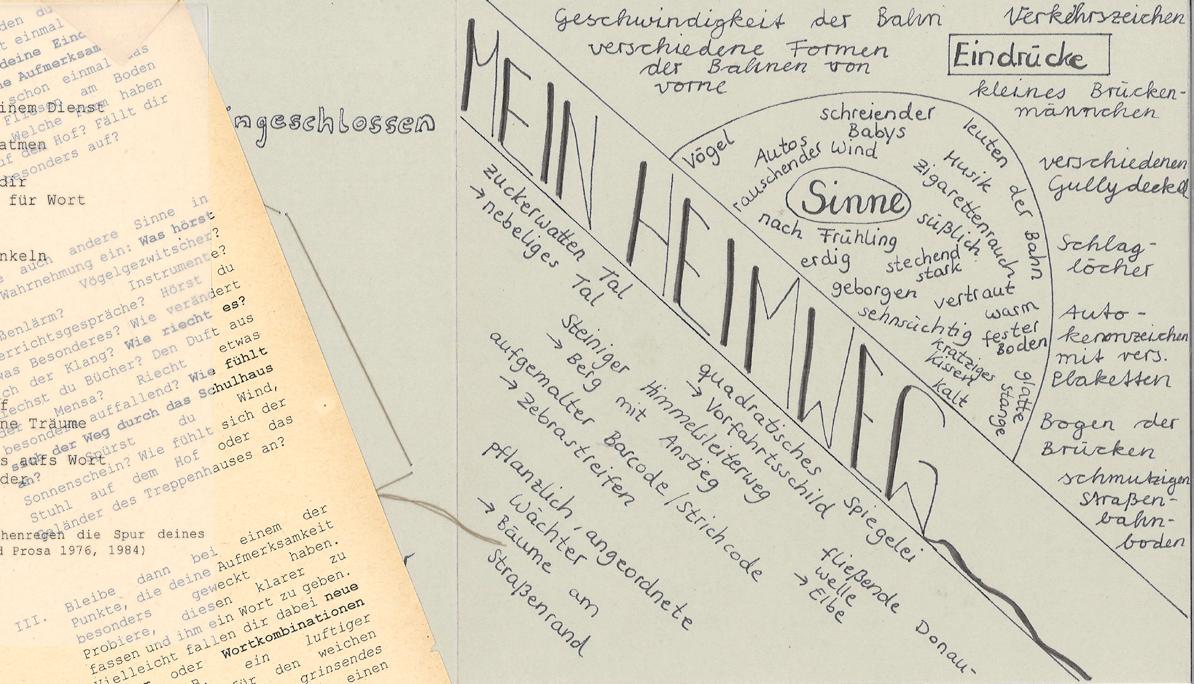 den du
t einmal
deine
Aufmerksam
schon einmal das
am Boden
Welche haben
uf den Hof? Fällt dir
besonders auf?
inem Dienst
atmen
dir
für Wort
nkeln
auch andere Sinne in
Wahrnehmung ein: Was hörst
Vögelgezwitscher?
Instrumente?
ßenlärm? Hörst du
errichtsgespräche? Wie verändert
was Besonderes? Wie riecht es?
ch der Klang? Den Duft aus
iechst du Bücher? Riecht etwas
der Mensa? Wie fühlt
besonders auffallend?
sich der Weg durch das Schulhaus
an? Spürst du Wind,
Sonnenschein? Wie fühlt sich der
Stuhl auf dem Hof oder das
Geländer des Treppenhauses an?
f
ne Träume
s aufs Wort
der?
chenregen die Spur deines
d Prosa 1976, 1984)
III. Bleibe dann bei einem der
Punkte, die deine Aufmerksamkeit
besonders geweckt haben.
Probiere, diesen klarer zu
fassen und ihm ein Wort zu geben.
Vielleicht fallen dir dabei neue
oder Wortkombinationen
ein luftiger
für den weichen
grinsendes
einen
ngeschlossen
MEIN HEIMWEG
Geschwindigkeit der Bahn
verschiedene Formen
der Bahnen von
vorne
Verkehrszeichen
Eindrücke
kleines Brücken-
männchen
verschiedenen
Gullydeckel
Schlag-
löcher
Auto-
kennzeichen
mit vers.
Plaketten
Bogen der
Brücken
schmutzigen
Straßen-
bahn-
boden
Sinne
Vögel
schreiender
Babys
Autos
rauschender Wind
leuten der Bahn
Musik
nach Frühling
erdig
Zigarettenrauch
süßlich
stechend
stark
geborgen
vertraut
sehnsüchtig
warm
fester
Boden
kratziges
Kissen
kalt
glatte
Stange
zuckerwatten Tal
→ nebeliges Tal
Steiniger Himmelsleiterweg
→ Berg mit Anstieg
quadratisches Spiegelei
→ Vorfahrtsschild
aufgemalter Barcode/Strichcode
→ Zebrastreifen
pflanzlich, angeordnete
Wächter
→ Bäume am
Straßenrand
fließende Donau-
welle
→ Elbe